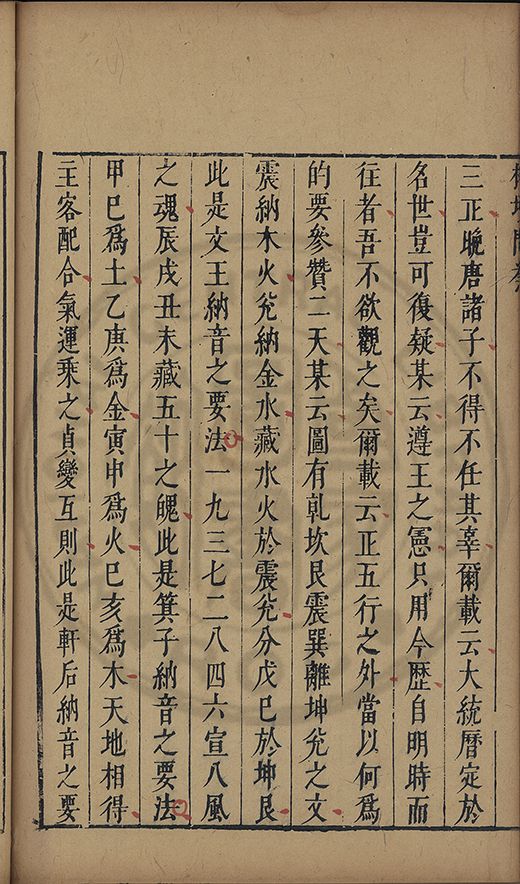 三正晚唐諸子不得不任其辜爾載云大統曆定於
名世豈可復疑某云遵王之憲只用今歷自明時而
往者吾不欲觀之矣爾載云正五行之外當以何爲
的要參贊二天某云圖有乾坎艮震巽離坤兌之文
震納木火兌納金水藏水火於震兌分戊巳於坤艮
此是文王納音之要法一九三七二八四六宣八風
之魂辰戌丑未藏五十之魄此是箕子納音之要法
甲巳爲土乙庚爲金寅申爲火巳亥爲木天地相得
主客配合氣運乘之貞變互則此是軒后納音之要